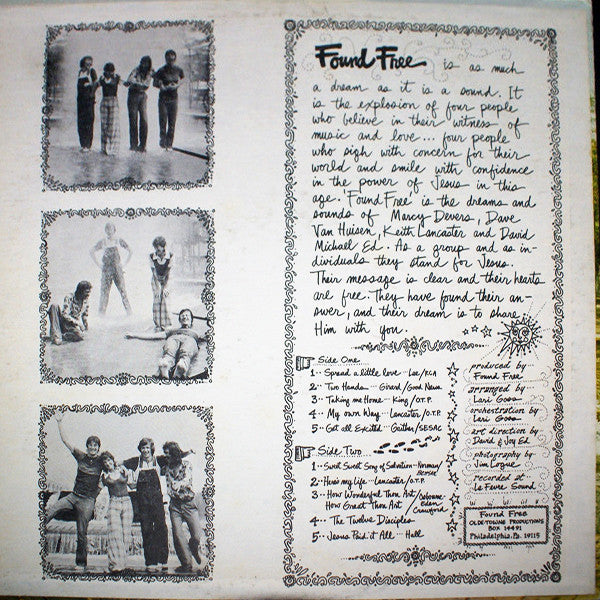 Found Free is as much
a dream as it is a sound. It
is the explosion of four people
who believe in their witness of
music and love... four people
who sigh with concern for their
world and smile with confidence
in the power of Jesus in this
age. 'Found Free' is the dreams and
sounds of Marcy Devers, Dave
Van Huisen, Keith Lancaster and David
Michael Ed. As a group and as in-
dividuals they stand for Jesus.
Their message is clear and their hearts
are free. They have found their an-
swer, and their dream is to share
Him with you.
Side One
1·· Spread a little love ·· Lee/KCA
2·· Two Hands ··· Girard/Good News
3·· Taking me Home ·· King/O.T.P.
4·· My own Way... Lancaster/O.T.P.
5·· Get all Excited... Gaither/SESAC
Side Two
1·· Sweet Sweet Song of Salvation ··
2·· He's my Life ·· Lancaster/O.T.P.
3·· How Wonderful Thou Art/ Osborne
How Great Thou Art/ Eden Crawford
4·· The Twelve Disciples
5·· Jesus Paid it All ·· Hall
produced by
Found Free
arranged by
Lari Goss
orchestration by
Lari Goss
art direction by
David & Joy Ed
photography by
Jim Logue
recorded at
Le Fevre Sound
Found Free
OLDE-TOWNE PRODUCTIONS
BOX 14491
Philadelphia, Pa. 19115